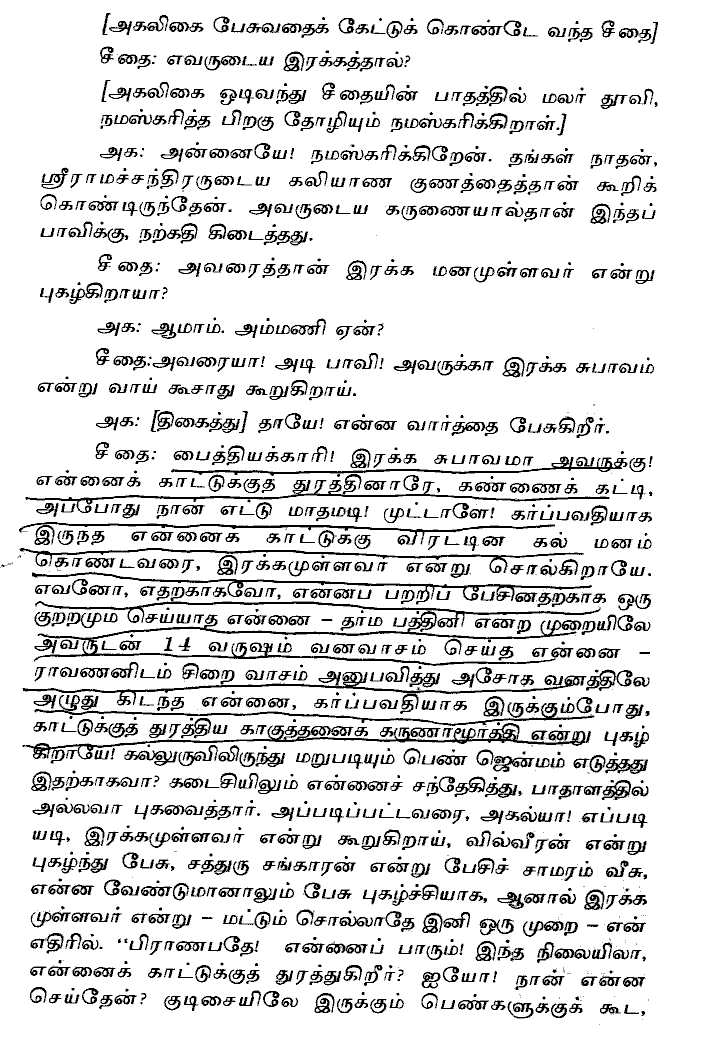 [அகலிகை பேசுவதைக் கேட்டுக் கொண்டே வந்த சீதை]
சீதை: எவருடைய இரக்கத்தால்?
[அகலிகை ஓடிவந்து சீதையின் பாதத்தில் மலர் தூவி,
நமஸ்கரித்த பிறகு தோழியும் நமஸ்கரிக்கிறாள்.]
அக: அன்னையே! நமஸ்கரிக்கிறேன். தங்கள் நாதன்,
ஸ்ரீராமச்சந்திரருடைய கலியாண குணத்தைத்தான் கூறிக்
கொண்டிருந்தேன். அவருடைய கருணையால்தான் இந்தப்
பாவிக்கு, நற்கதி கிடைத்தது.
சீதை: அவரைத்தான் இரக்க மனமுள்ளவர் என்று
புகழ்கிறாயா?
அக: ஆமாம். அம்மணி ஏன்?
சீதை:அவரையா! அடி பாவி! அவருக்கா இரக்க சுபாவம்
என்று வாய் கூசாது கூறுகிறாய்.
அக: [திகைத்து] தாயே! என்ன வார்த்தை பேசுகிறீர்.
சீதை: பைத்தியக்காரி! இரக்க சுபாவமா அவருக்கு!
என்னைக் காட்டுக்குத் துரத்தினாரே, கண்ணைக் கட்டி,
அப்போது நான் எட்டு மாதமடி! முட்டாளே! கர்ப்பவதியாக
இருந்த என்னைக் காட்டுக்கு விரட்டின கல் மனம்
கொண்டவரை, இரக்கமுள்ளவர் என்று சொல்கிறாயே.
எவனோ, எதற்காகவோ, என்னப் பற்றிப் பேசினதற்காக ஒரு
குற்றமும் செய்யாத என்னை – தர்ம பத்தினி என்ற முறையிலே
அவருடன் 14 வருஷம் வனவாசம் செய்த என்னை –
ராவணனிடம் சிறை வாசம் அனுபவித்து அசோக வனத்திலே
அழுது கிடந்த என்னை, கர்ப்பவதியாக இருக்கும்போது,
காட்டுக்குத் துரத்திய காகுத்தனைக் கருணாமூர்த்தி என்று புகழ்
கிறாயே! கல்லுருவிலிருந்து மறுபடியும் பெண் ஜென்மம் எடுத்தது
இதற்காகவா? கடைசியிலும் என்னைச் சந்தேகித்து, பாதாளத்தில்
அல்லவா புகவைத்தார். அப்படிப்பட்டவரை, அகல்யா! எப்படி
யடி, இரக்கமுள்ளவர் என்று கூறுகிறாய், வில்வீரன் என்று
புகழ்ந்து பேசு, சத்துரு சங்காரன் என்று பேசிச் சாமரம் வீசு,
என்ன வேண்டுமானாலும் பேசு புகழ்ச்சியாக, ஆனால் இரக்க
முள்ளவர் என்று – மட்டும் சொல்லாதே இனி ஒரு முறை – என்
எதிரில். “பிராணபதே! என்னைப் பாரும்! இந்த நிலையிலா,
என்னைக் காட்டுக்குத் துரத்துகிறீர்? ஐயோ! நான் என்ன
செய்தேன்? குடிசையிலே இருக்கும் பெண்களுக்குக் கூட,